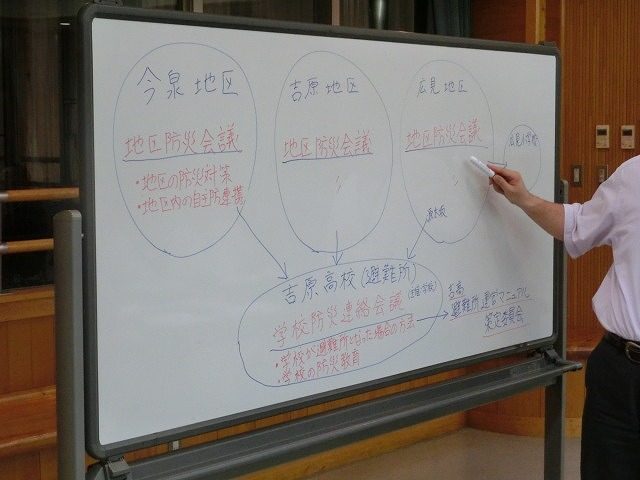 今泉地区
地区防災会議
・地区の防災対策
・地区内の自主防連携
吉原地区
地区防災会議
〃
広見地区
地区防災会議
〃
広見小学校
吉原高校(避難所)
学校防災連絡会議
・学校が避難所になった場合の方法
・学校の防災教育
吉高
避難所運営マニュアル
策定委員会